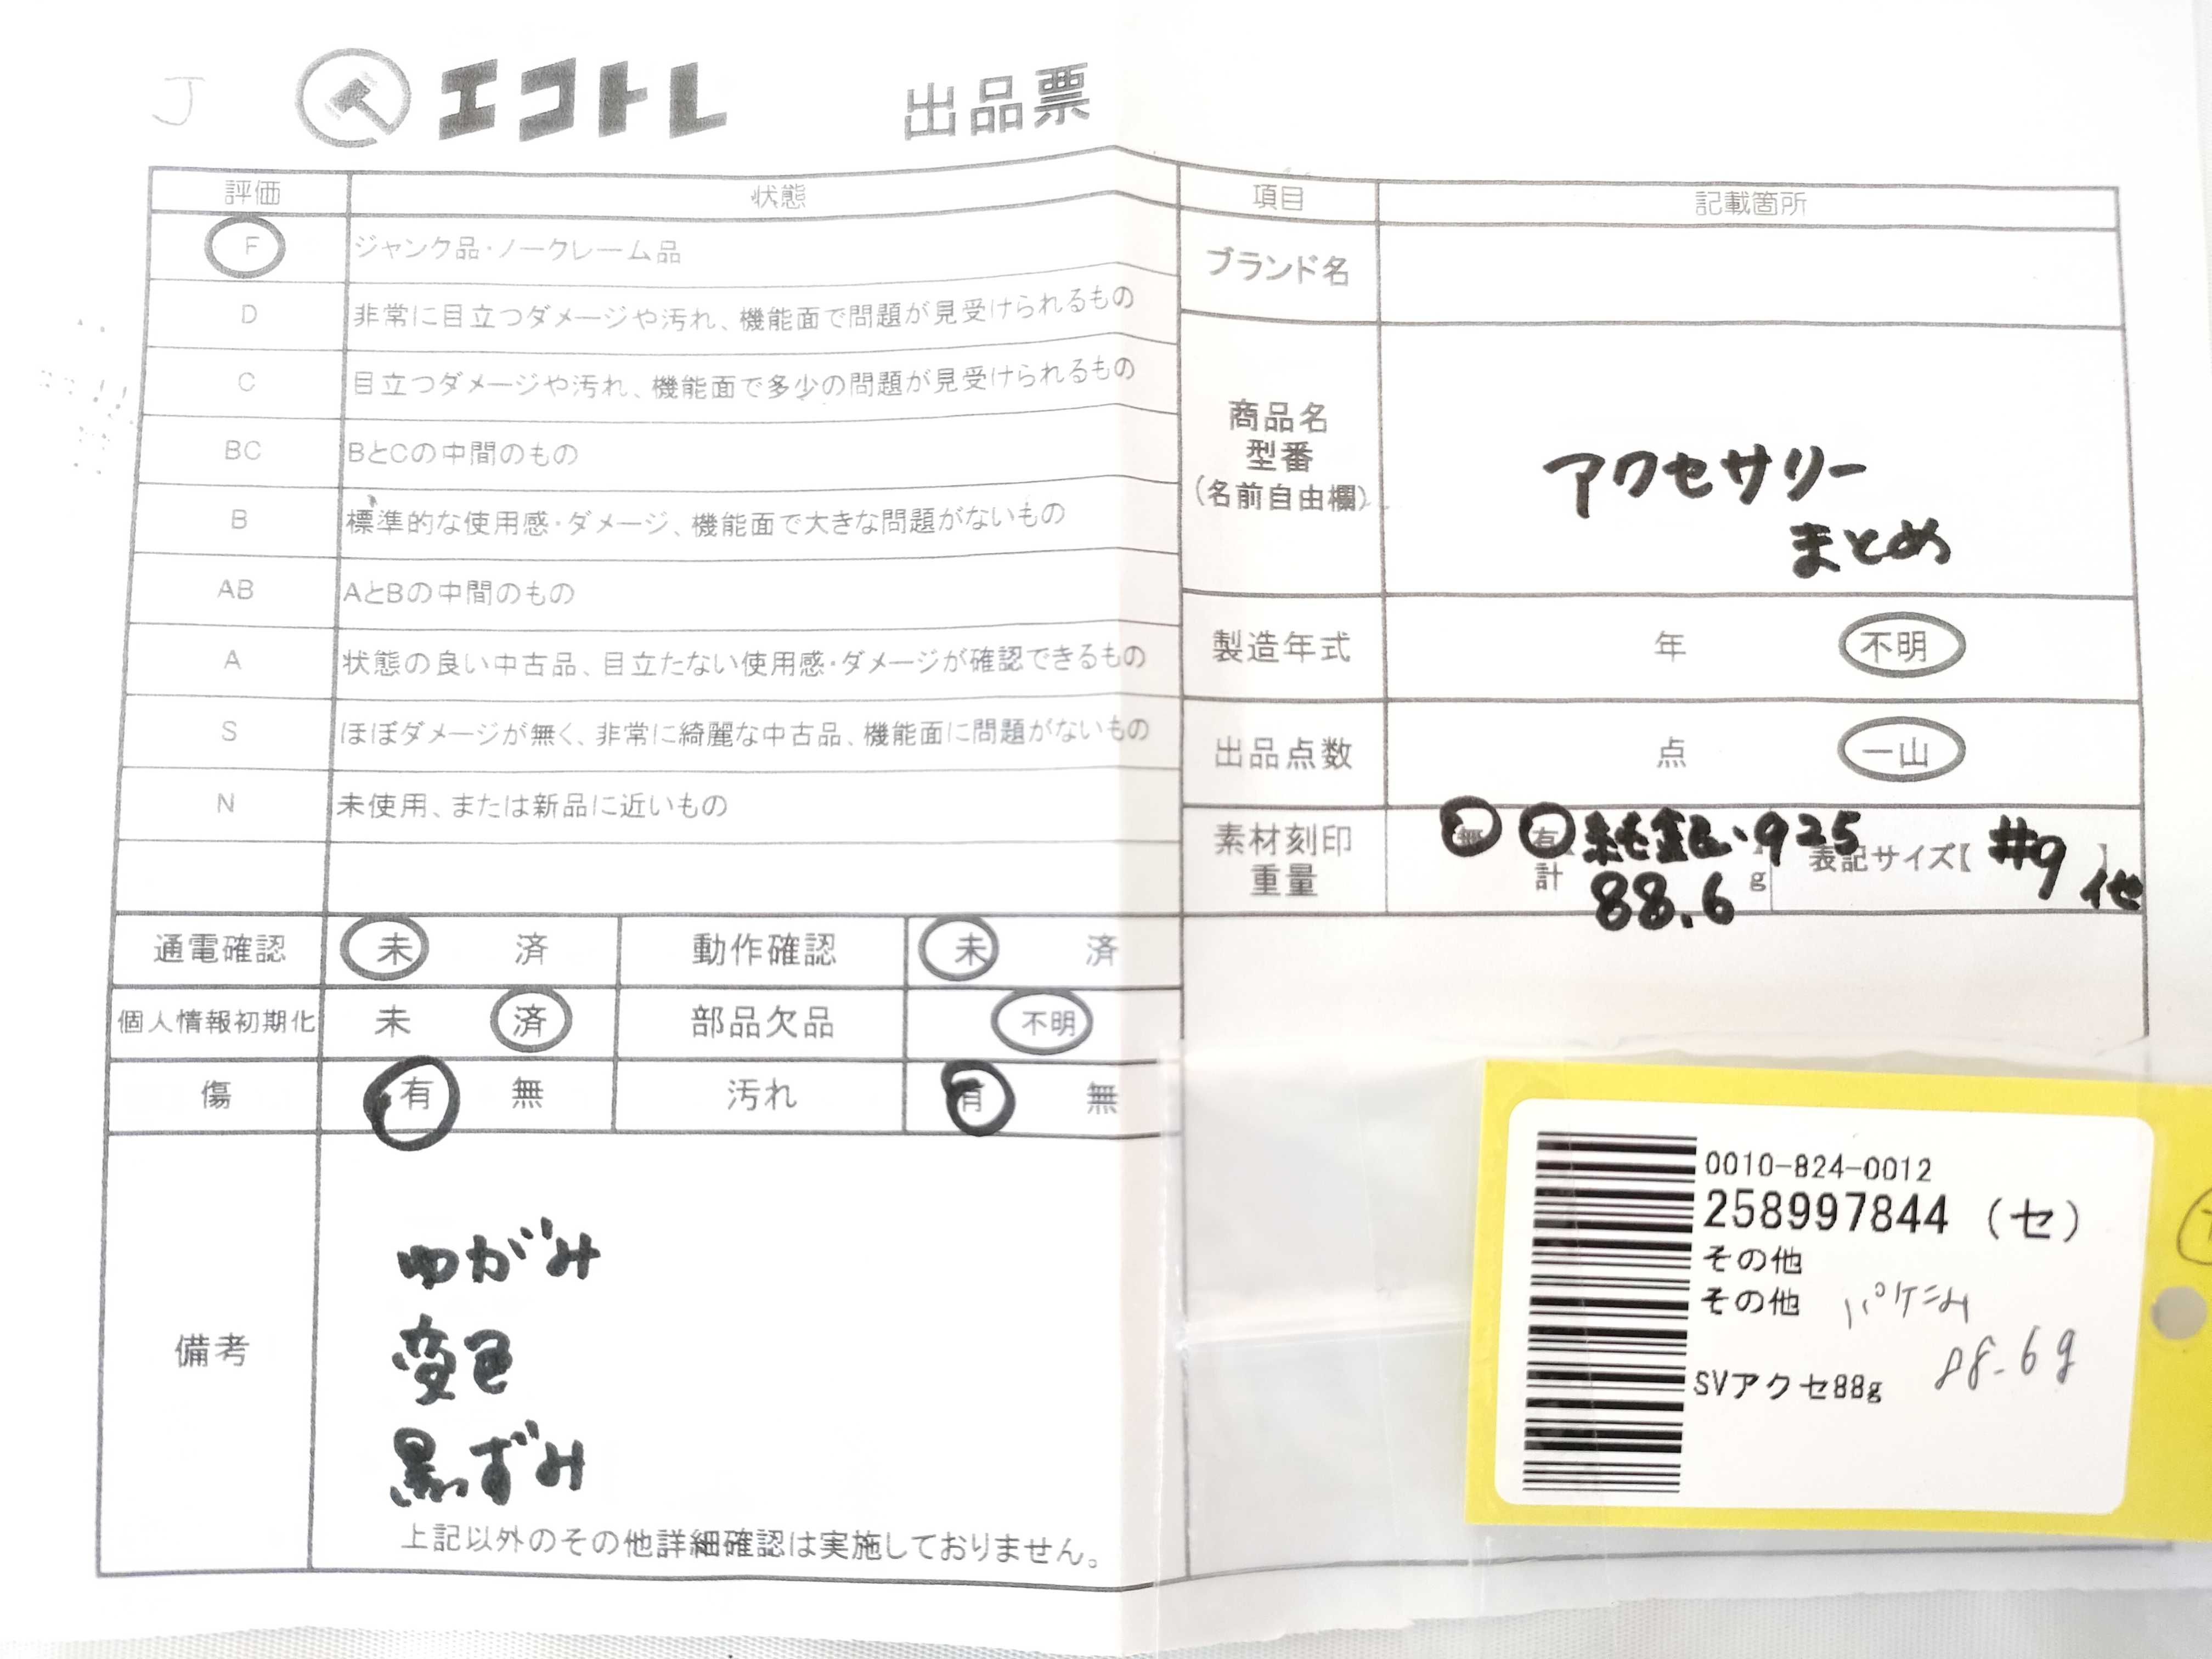 J
エコトレ 出品票
評価 状態
F ジャンク品・ノークレーム品
D 非常に目立つダメージや汚れ、機能面で問題が見受けられるもの
C 目立つダメージや汚れ、機能面で多少の問題が見受けられるもの
BC BとCの中間のもの
B 標準的な使用感・ダメージ、機能面で大きな問題がないもの
AB AとBの中間のもの
A 状態の良い中古品、目立たない使用感・ダメージが確認できるもの
S ほぼダメージが無く、非常に綺麗な中古品、機能面に問題がないもの
N 未使用、または新品に近いもの
通電確認 未 済 動作確認 未 済
個人情報初期化 未 済 部品欠品 不明
傷 有 無 汚れ 有 無
備考
ゆがみ
変色
黒ずみ
上記以外のその他詳細確認は実施しておりません。
項目 記載箇所
ブランド名
商品名
型番
(名前自由欄)
アクセサリー
まとめ
製造年式 年 不明
出品点数 点 一山
素材刻印
重量
無 有 純銀、925
計 88.6 g
表記サイズ【 #9 】
他
0010-824-0012
258997844 (セ)
その他
その他
SVアクセ88g
88.6g